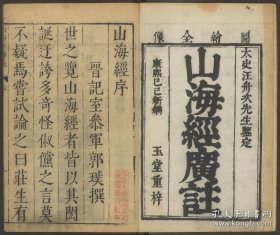 圖繪全像
太史汪舟次先生鑒定
山海經廣註
康熙己巳新鐫
玉堂重梓
山海經序
晉記室參軍郭璞撰
世之覽山海經者皆以其閎
誕迂誇多奇怪俶儻之言莫
不疑焉嘗試論之曰莊生有